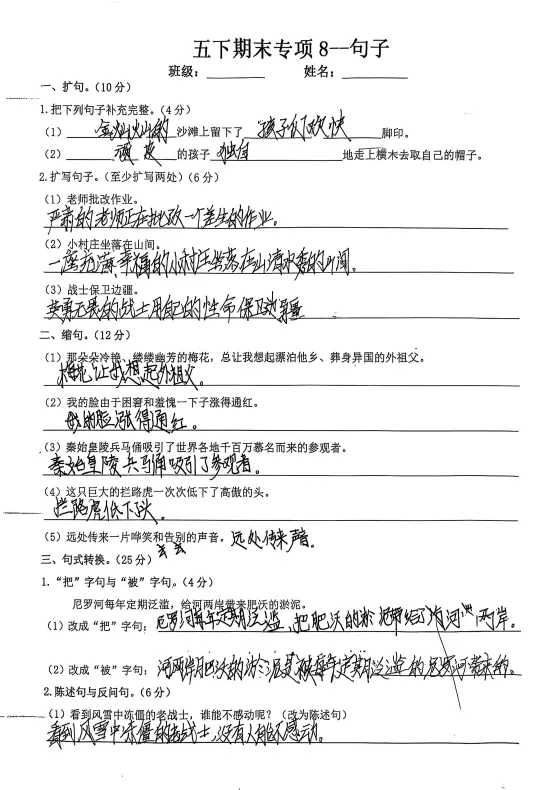 五下期末专项8--句子
班级：________ 姓名：________
一、扩句。(10分)
1.把下列句子补充完整。(4分)
(1) 金灿灿的 沙滩上留下了 孩子们欢快 脚印。
(2) 顽皮 的孩子 独自 地走上横木去取自己的帽子。
2.扩写句子。(至少扩写两处)(6分)
(1) 老师批改作业。
严肃的老师正在批改一个差生的作业。
(2) 小村庄坐落在山间。
一座充满幸福的小村庄坐落在山清水秀的山间。
(3) 战士保卫边疆。
英勇无畏的战士用自己的性命保卫边疆
二、缩句。(12分)
(1) 那朵朵冷艳、缕缕幽芳的梅花，总让我想起漂泊他乡、葬身异国的外祖父。
梅花让我想起外祖父。
(2) 我的脸由于困窘和羞愧一下子涨得通红。
我的脸涨得通红。
(3) 秦始皇陵兵马俑吸引了世界各地千百万慕名而来的参观者。
秦始皇陵兵马俑吸引了参观者。
(4) 这只巨大的拦路虎一次次低下了高傲的头。
拦路虎低下头。
(5) 远处传来一片哗笑和告别的声音。远处传来声音。
三、句式转换。(25分)
1.“把”字句与“被”字句。(4分)
尼罗河每年定期泛滥，给河两岸带来肥沃的淤泥。
(1) 改成“把”字句： 尼罗河每年定期泛滥，把肥沃的淤泥带给了河两岸。
(2) 改成“被”字句： 河两岸肥沃的淤泥是被每年定期泛滥的尼罗河带来的。
2.陈述句与反问句。(6分)
(1) 看到风雪中冻僵的老战士，谁能不感动呢？(改为陈述句)
看到风雪中冻僵的老战士，没有人能不感动。